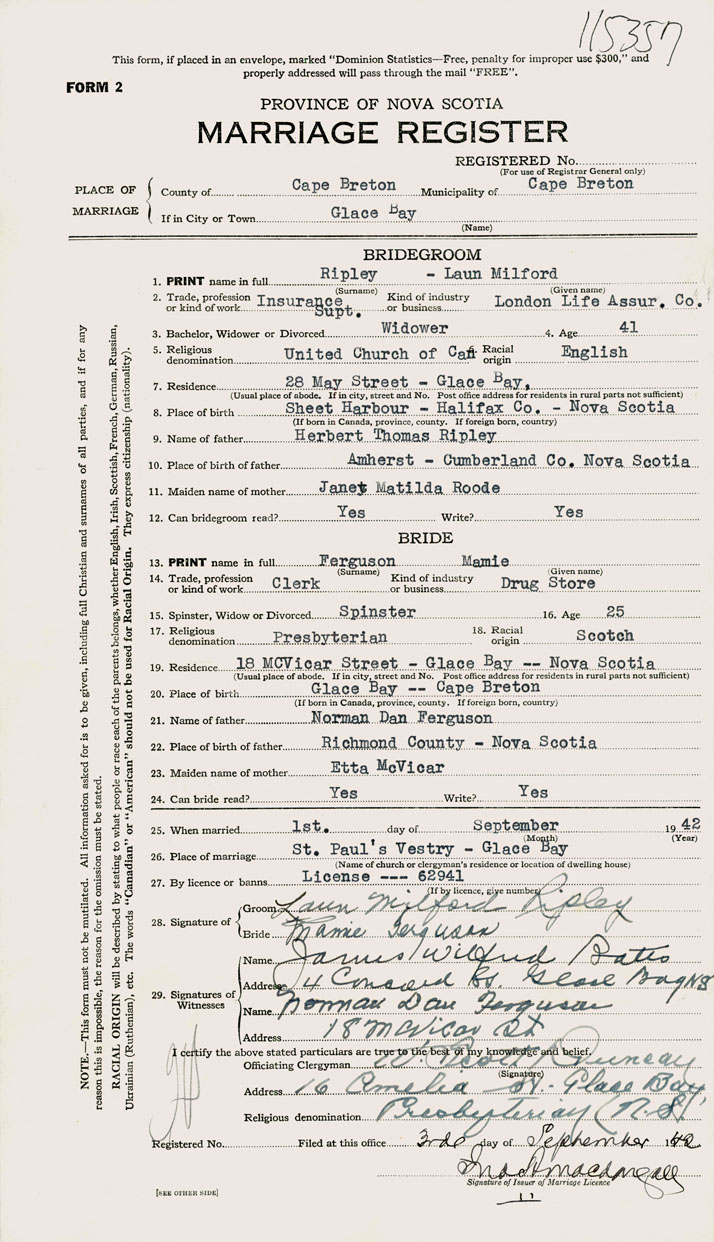 115357
This form, if placed in an envelope, marked "Dominion Statistics—Free, penalty for improper use $300," and
properly addressed will pass through the mail "FREE".
FORM 2
PROVINCE OF NOVA SCOTIA
MARRIAGE REGISTER
REGISTERED No.
(For use of Registrar General only)
PLACE OF MARRIAGE
County of Cape Breton Municipality of Cape Breton
If in City or Town Glace Bay
(Name)
BRIDEGROOM
1. PRINT name in full Ripley - Laun Milford
(Surname) (Given name)
2. Trade, profession or kind of work Insurance Supt. Kind of industry or business London Life Assur. Co.
3. Bachelor, Widower or Divorced Widower 4. Age 41
5. Religious denomination United Church of Can. Racial origin English
7. Residence 28 May Street - Glace Bay,
(Usual place of abode. If in city, street and No. Post office address for residents in rural parts not sufficient)
8. Place of birth Sheet Harbour - Halifax Co. - Nova Scotia
(If born in Canada, province, county. If foreign born, country)
9. Name of father Herbert Thomas Ripley
10. Place of birth of father Amherst - Cumberland Co. Nova Scotia
11. Maiden name of mother Janet Matilda Roode
12. Can bridegroom read? Yes Write? Yes
BRIDE
13. PRINT name in full Ferguson Mamie
(Surname) (Given name)
14. Trade, profession or kind of work Clerk Kind of industry or business Drug Store
15. Spinster, Widow or Divorced Spinster 16. Age 25
17. Religious denomination Presbyterian 18. Racial origin Scotch
19. Residence 18 MCVicar Street - Glace Bay -- Nova Scotia
(Usual place of abode. If in city, street and No. Post office address for residents in rural parts not sufficient)
20. Place of birth Glace Bay -- Cape Breton
(If born in Canada, province, county. If foreign born, country)
21. Name of father Norman Dan Ferguson
22. Place of birth of father Richmond County - Nova Scotia
23. Maiden name of mother Etta McVicar
24. Can bride read? Yes Write? Yes
25. When married 1st. day of September 1942
(Month) (Year)
26. Place of marriage St. Paul's Vestry - Glace Bay
(Name of church or clergyman's residence or location of dwelling house)
27. By licence or banns License --- 62941
(If by licence, give number)
28. Signature of
Groom Laun Milford Ripley
Bride Mamie Ferguson
29. Signatures of Witnesses
Name James Wilfred Bates
Address 14 Concord St. Glace Bay NS
Name Norman Dan Ferguson
Address 18 McVicar St
I certify the above stated particulars are true to the best of my knowledge and belief.
Officiating Clergyman W. Scott Duncan
(Signature)
Address 16 Amelia St. Glace Bay
Religious denomination Presbyterian (N.S)
Registered No. Filed at this office 3rd day of September 1942
Signature of Issuer of Marriage Licence
11
[SEE OTHER SIDE]
NOTE.—This form must not be mutilated. All information asked for is to be given, including full Christian and surnames of all parties, and if for any
reason this is impossible, the reason for the omission must be stated.
RACIAL ORIGIN will be described by stating to what people or race each of the parents belongs, whether English, Irish, Scottish, French, German, Russian,
Ukrainian (Ruthenian), etc. The words "Canadian" or "American" should not be used for Racial Origin. They express citizenship (nationality).